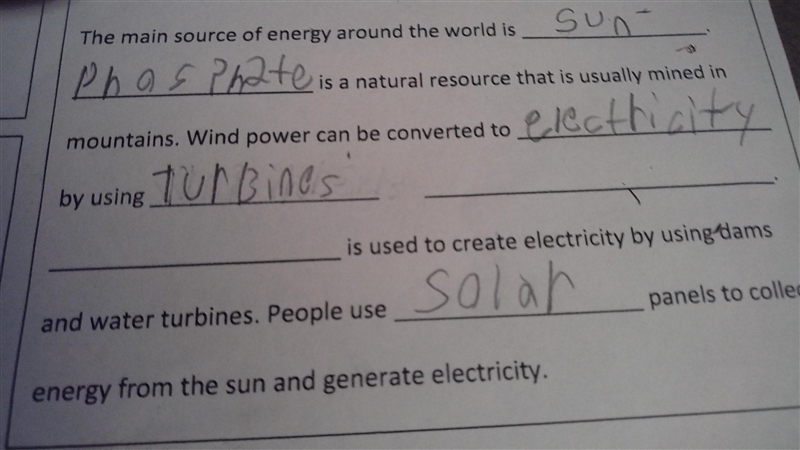 The main source of energy around the world is sun.
phasphate is a natural resource that is usually mined in
mountains. Wind power can be converted to electricity
by using turbines .
is used to create electricity by using dams
and water turbines. People use solar panels to collec
energy from the sun and generate electricity.